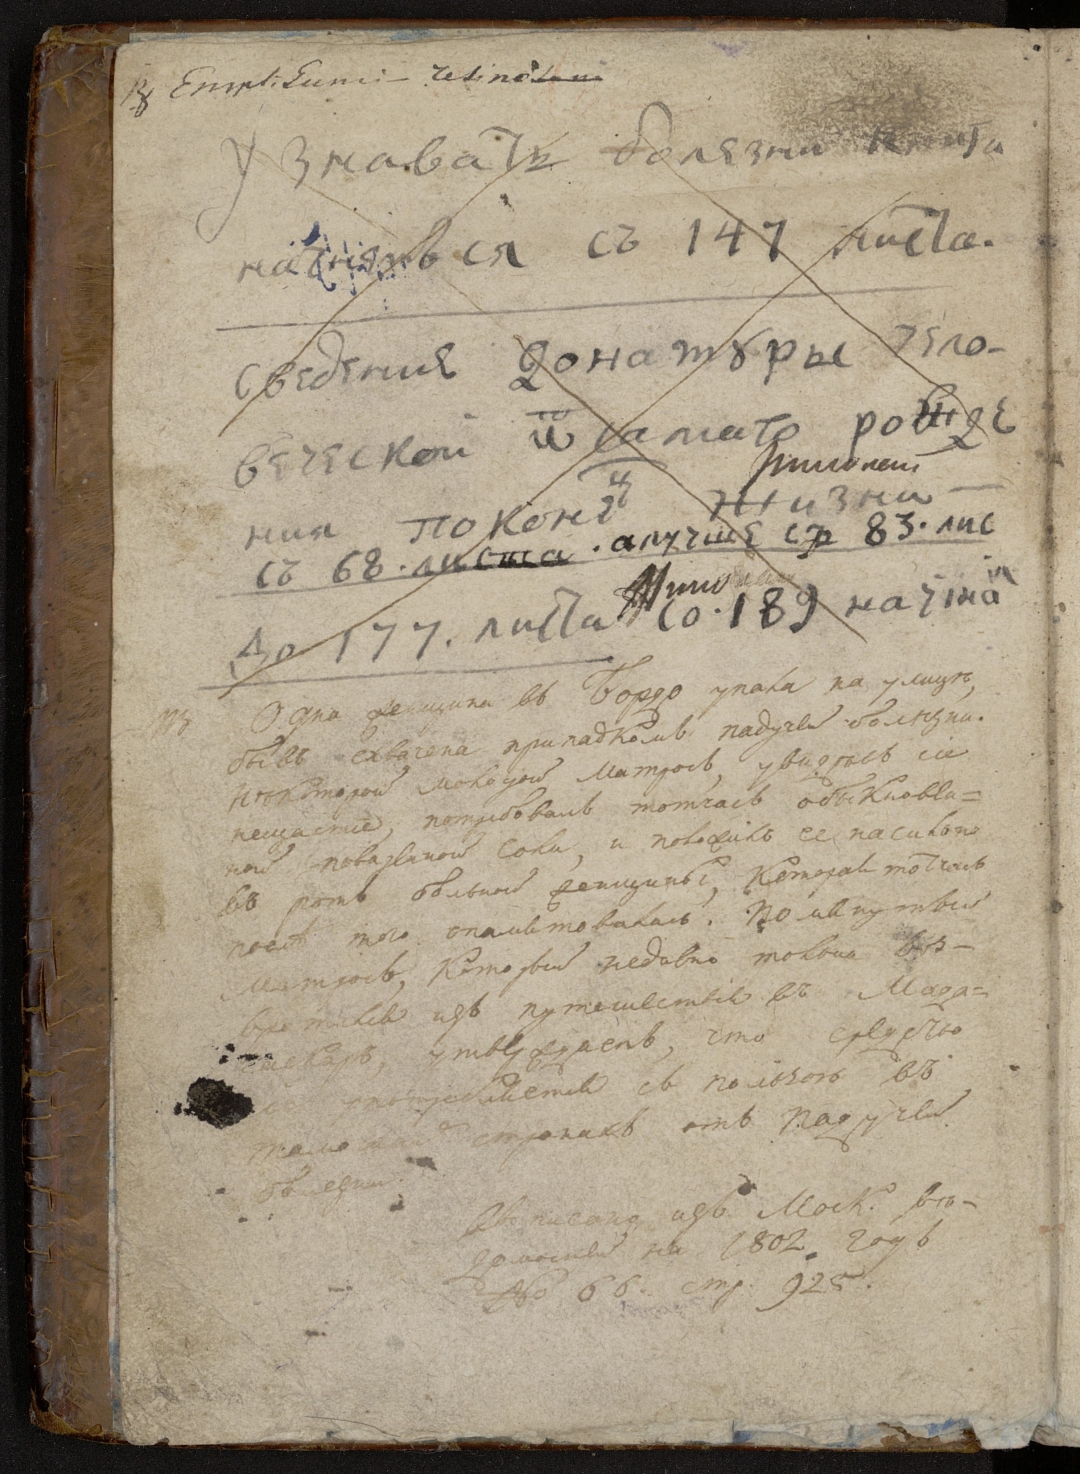 Empl: Gumi- resinosum
Узнавать болязни
с 147 листа.
сведение до натуры чело-
веческой ѿ самаго рожде
ния по конец жизни
съ 68. листа. а лучше ср 83. лис
до 177. листа со. 189 начина
Одна женщина въ Бордо упала на улицѣ,
бывъ схвачена припадкомъ падучей болѣзни.
Нѣкоторой молодой Матрозъ, увидѣвъ сіе
нещастіе, потребовалъ тотчасъ обыкнове=
ной поваренной соли, и положилъ ее насильно
въ ротъ больной женщины, Которая тотчасъ
послѣ того опамятовалась.
Матрозъ, Который недавно токмо воз-
вратился изъ путешествія въ Мада=
гаскаръ, утверждаетъ, что средство
сіе употребляется съ пользою въ
странахъ отъ падучей
болѣзни.
Выписано изъ Моск. вѣ-
домостей на 1802 годъ
No 66. стр. 925.